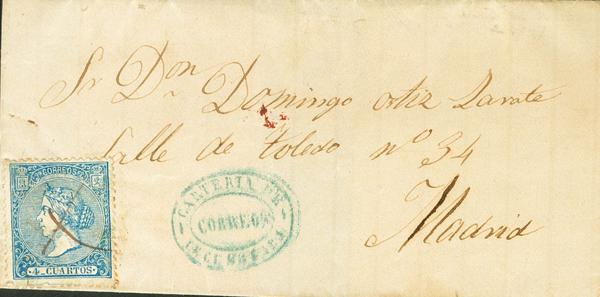 Sr Don Domingo Ortiz Zarate
Calle de Toledo nº 34
Madrid
CORREOS
4 CUARTOS
CARTERIA DE
CORREOS